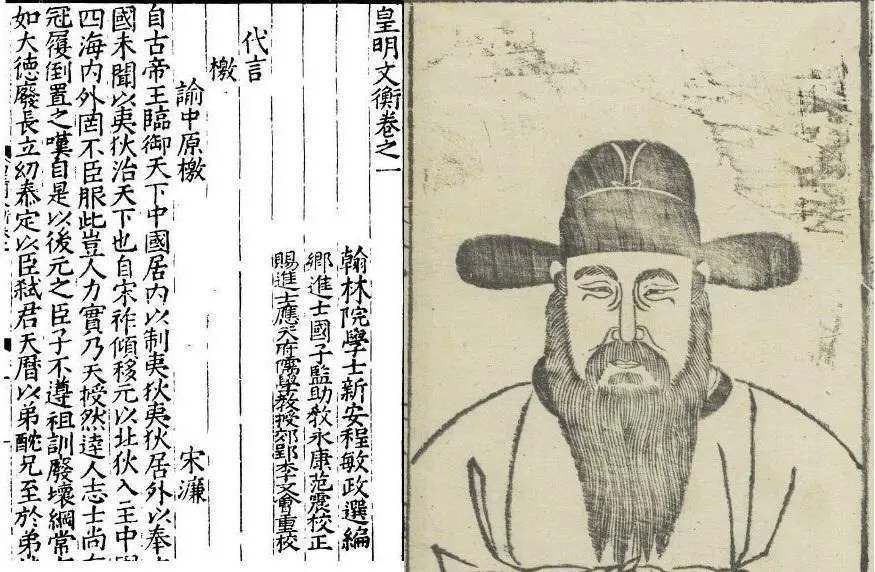 皇明文衡卷之一
翰林院學士新安程敏政選編
鄉進士國子監助教永康范震校正
賜進士應天府儒學教授郊郢李文會重校
代言
檄
諭中原檄
宋濂
自古帝王臨御天下中國居內以制夷狄夷狄居外以奉
國未聞以夷狄治天下也自宋祚傾移元以北狄入主中
四海內外罔不臣服此豈人力實乃天授然達人志士尚
冠履倒置之嘆自是以後元之臣子不遵祖訓廢壞綱常
如大德廢長立幼泰定以臣弑君天曆以弟酖兄至於弟